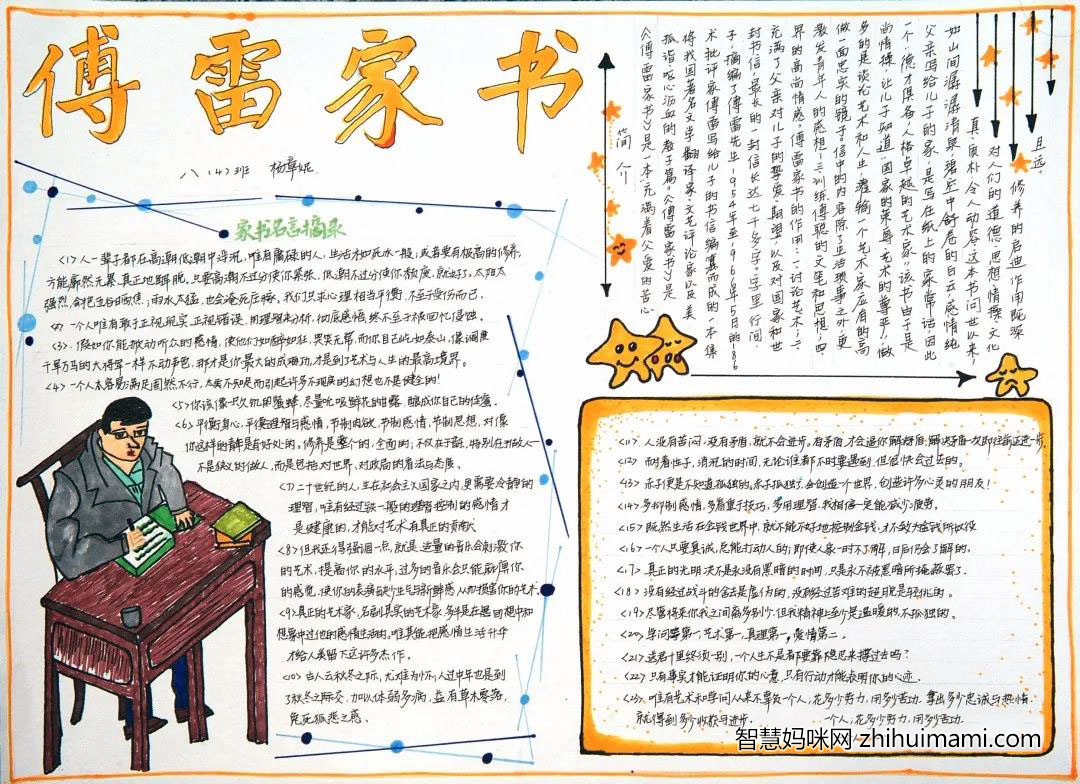 傅雷家书
八(4)班 杨章妮
家书名言摘录
<1>人一辈子都在高潮低潮中浮沉,唯有庸碌的人,生活才如死水一般;或者要有极高的修养,
方能廓然无累,真正地解脱。只要高潮不过分使你紧张,低潮不过分使你颓废,就好了。太阳太
强烈,会把五谷晒焦;雨水太猛,也会淹死庄稼,我们只求心理相当平衡,不至于受伤而已。
一个人唯有敢于正视现实,正视错误,用理智分析,彻底感悟,终不至于被回忆侵蚀。
<3>假如你能掀动听众的感情,使他们如醉如狂,哭笑无常,而你自己屹如泰山,像调度
千军万马的大将军一样不动声色,那才是你最大的成功,才是到了艺术与人生的最高境界。
<4>一个人太容易满足固然不行,太不知足而引起许多不现实的幻想也不是健全的!
<5>你该像一只久饥的蜜蜂,尽量吮吸鲜花的甘露,酿成你自己的佳蜜。
<6>平衡身心,平衡理智与感情,节制肉欲,节制感情,节制思想,对像
你这样的青年是有好处的。修养是整个的,全面的;不仅在于音乐,特别在于做人—
不是狭义的做人,而是包括对世界,对政局的看法与态度。
<7>二十世纪的人,生在社会主义国家之内,更需要冷静的
理智,唯有经过铁一般的理智控制的感情才
是健康的,才能对艺术有真正的贡献
<8>但我还得强调一点,就是适量的音乐会刺激你
的艺术,提高你的水平,过多的音乐会只能麻痹你
的感觉,使你的表演缺少生气与新鲜感,从而损害你的艺术
<9>真正的艺术家,名副其实的艺术家,多半是在回想中和
想象中过他的感情生活的。唯其能把感情生活升华
才给人类留下这许多杰作。
<10>古人云秋冬之际,尤难为怀,人过中年也是到
了秋冬之际交,加以体弱多病,益有草木零落,
兔死狐悲之感。
简介
《傅雷家书》是一本充满着父爱的苦心
孤诣呕心沥血的教子篇。《傅雷家书》是
将我国著名文学翻译家、文艺评论家以及美
术批评家傅雷写给儿子的书信编纂而成的一本集
子,摘编了傅雷先生1954年至1966年5月的186
封书信,最长的一封信长达七千多字。字里行间,
充满了父亲对儿子的挚爱、期望,以及对国家和世
界的高尚情感。傅雷家书的作用:一讨论艺术;二
激发青年人的感想;三训练傅聪的文笔和思想;四
做一面忠实的镜子。信中的内容,除了生活琐事之外,更
多的是谈论艺术和人生,灌输一个艺术家应有的高
尚情操,让儿子知道"国家的荣辱、艺术的尊严",做
一个"德才俱备、人格卓越的艺术家"该书由于是
父亲写给儿子的家,是写在纸上的家常话,因此
如山间潺潺清泉,碧空中舒卷的白云,感情纯
真、质朴,令人动容。这本书问世以来,
对人们的道德、思想、情操、文化
修养的启迪作用既深
且远。
<11>人没有苦闷,没有矛盾,就不会进步。有矛盾才会逼你解决矛盾,解决矛盾一次即往前迈进一步。
<12>耐着性子,消沉的时间,无论谁都不时要遇到,但很快会过去的。
赤子便是不知道孤独的。赤子孤独了,会创造一个世界,创造许多心灵的朋友!
<14>多抑制感情,多着重于技巧,多用理智,我相信一定能减少疲劳。
<15>既然生活在金钱世界中,就不能不好好地控制金钱,才不致为金钱所奴役
<16>一个人只要真诚,总能打动人的;即使人家一时不了解,日后仍会了解的。
<17>真正的光明决不是永没有黑暗的时间,只是永不被黑暗所掩蔽罢了。
<18>没有经过战斗的舍弃是虚伪的,没有经过苦难的超脱是轻化的。
<19>尽管将来你我之间离多别少,但我精神至少是温暖的,不孤独的。
<20>学问第一,艺术第一,真理第一,爱情第二。
<21>送君千里终须一别,一个人生不是都要靠隐忍来撑过去吗?
<22>只有事实才能证明你的心意,只有行动才能表明你的心迹。
<23>唯有艺术和学问从来不辜负人;花多少劳力,用多少苦功,拿出多少忠诚与热情
就得到多少收获与进步。 个人;花多少劳力,用多少苦功.
智慧妈咪网 zhihuimami.com